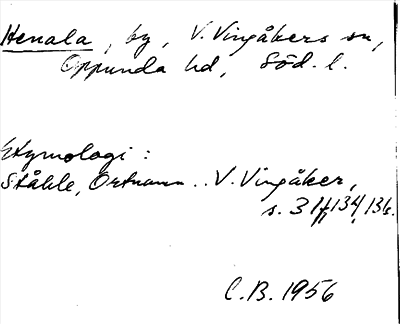 Henala, by, V. Vingåkers sn,
Oppunda hd, Söd. l.
Etymologi:
Ståhle, Ortnamn.. V. Vingåker,
s. 3 ff, 134, 136.
C.B. 1956